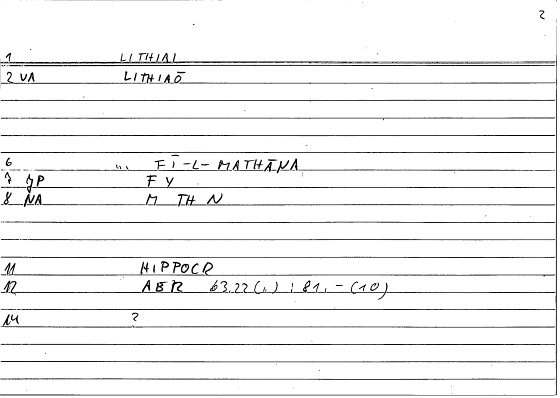 2
1 LITHIAI
2 VA LITHIAŌ
6 ,,, FĪ-L-MATHĀNA
7 JP F Y
8 NA M TH N
11 HIPPOCR
12 ABR 63.22 (,,) : 81. - (10)
14 ?